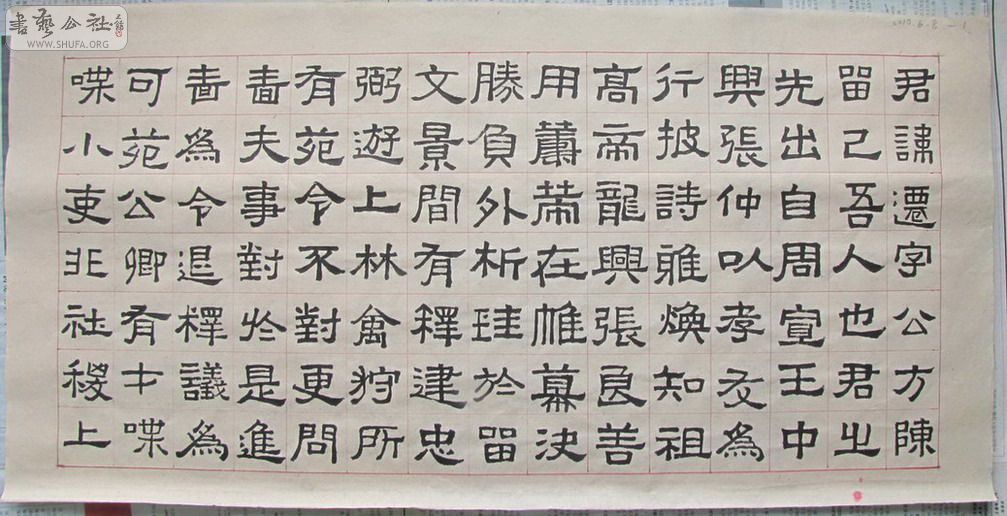 書藝公社
WWW.SHUFA.ORG
君諱遷字公方陳
留己吾人也君之
先出自周宣王中
興張仲以孝友為
行披詩雅煥知祖
高帝龍興張良善
用籌策在帷幕決
勝負外析珪於留
文景間有釋建忠
弼遊上林禽狩所
有苑令不對更問
嗇夫事對於是進
嗇為令退釋議為
可苑公卿有才喋
喋小吏非社稷上